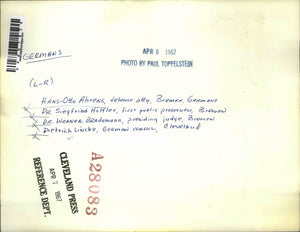 GERMANS
APR 6 1967
PHOTO BY PAUL TOPPELSTEIN
(L-R)
Hans-Otto Ahrens, defense atty, Bremen, Germany
Dr. Siegfried Höffler, first public prosecutor, Bremen
Dr. Werner Bendemann, presiding judge, Bremen
Dietrich Lincke, German consul, Cleveland
CLEVELAND PRESS
APR 7 1967
REFERENCE DEPT.
A28083